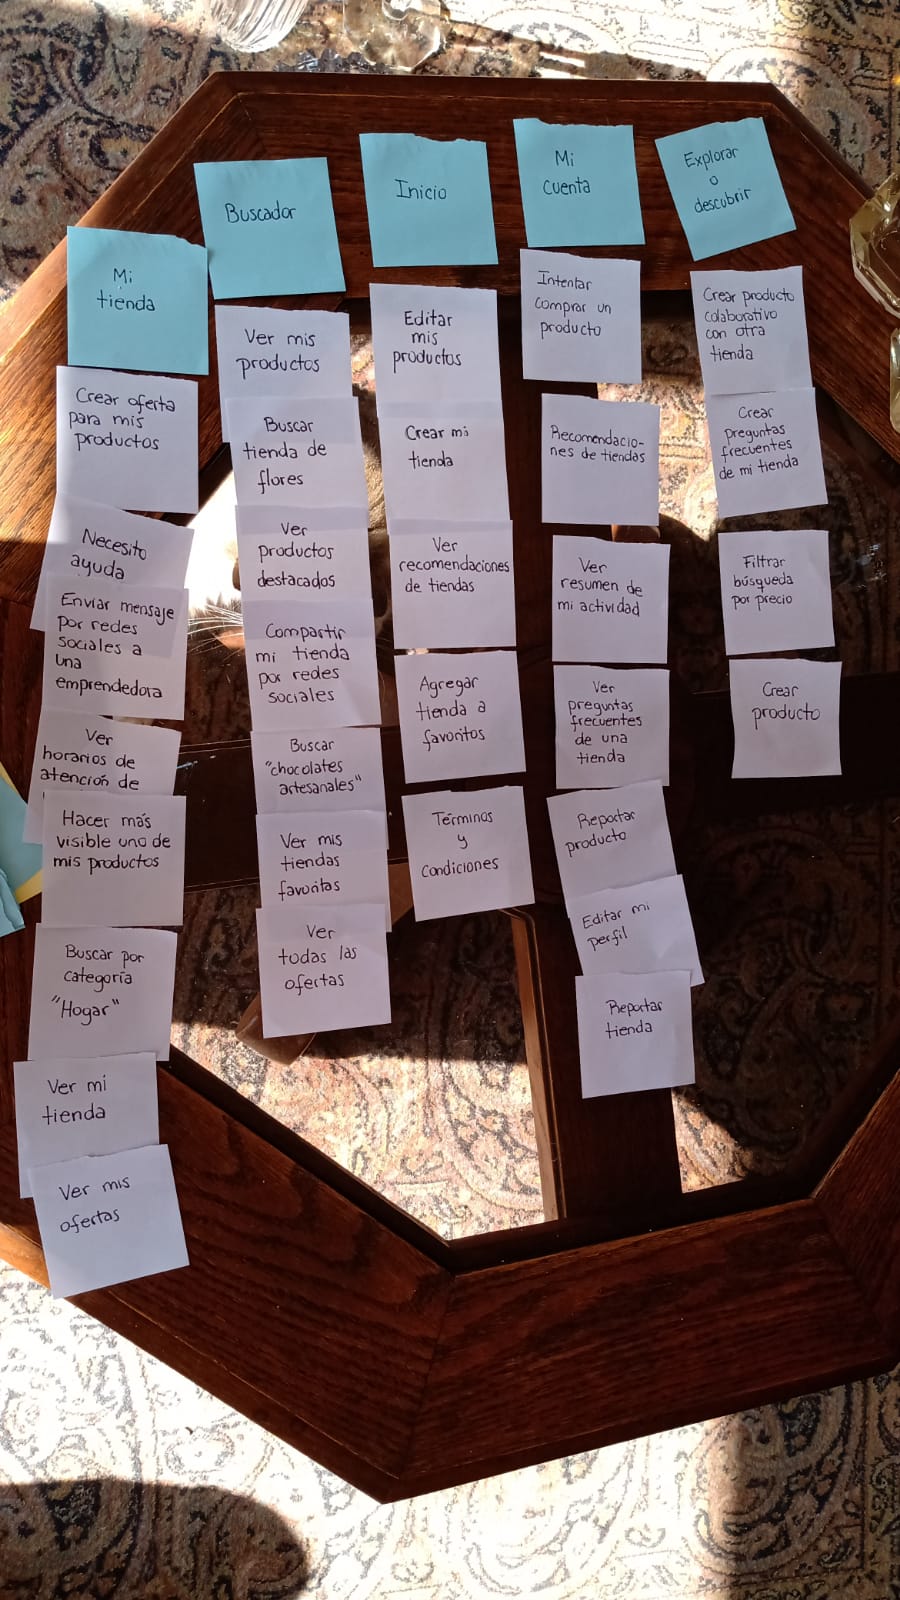 Mi
tienda
Crear oferta
para mis
productos
Necesito
ayuda
Enviar mensaje
por redes
sociales a
una
emprendedora
Ver
horarios de
atención de
Hacer más
visible uno de
mis productos
Buscar por
categoría
"Hogar"
Ver mi
tienda
Ver mis
ofertas
Buscador
Ver mis
productos
Buscar
tienda de
flores
Ver
productos
destacados
Compartir
mi tienda
por redes
sociales
Buscar
"chocolates
artesanales"
Ver mis
tiendas
favoritas
Ver
todas las
ofertas
Inicio
Editar
mis
productos
Crear mi
tienda
Ver
recomendaciones
de tiendas
Agregar
tienda a
favoritos
Términos
y
condiciones
Mi
cuenta
Intentar
comprar un
producto
Recomendacio-
nes de tiendas
Ver
resumen de
mi actividad
Ver
preguntas
frecuentes
de una
tienda
Reportar
producto
Editar mi
perfil
Reportar
tienda
Explorar
o
descubrir
Crear producto
colaborativo
con otra
tienda
Crear
preguntas
frecuentes
de mi tienda
Filtrar
búsqueda
por precio
Crear
producto